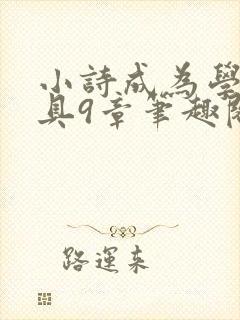 小詩成為學
具9章筆趣閣
路運来